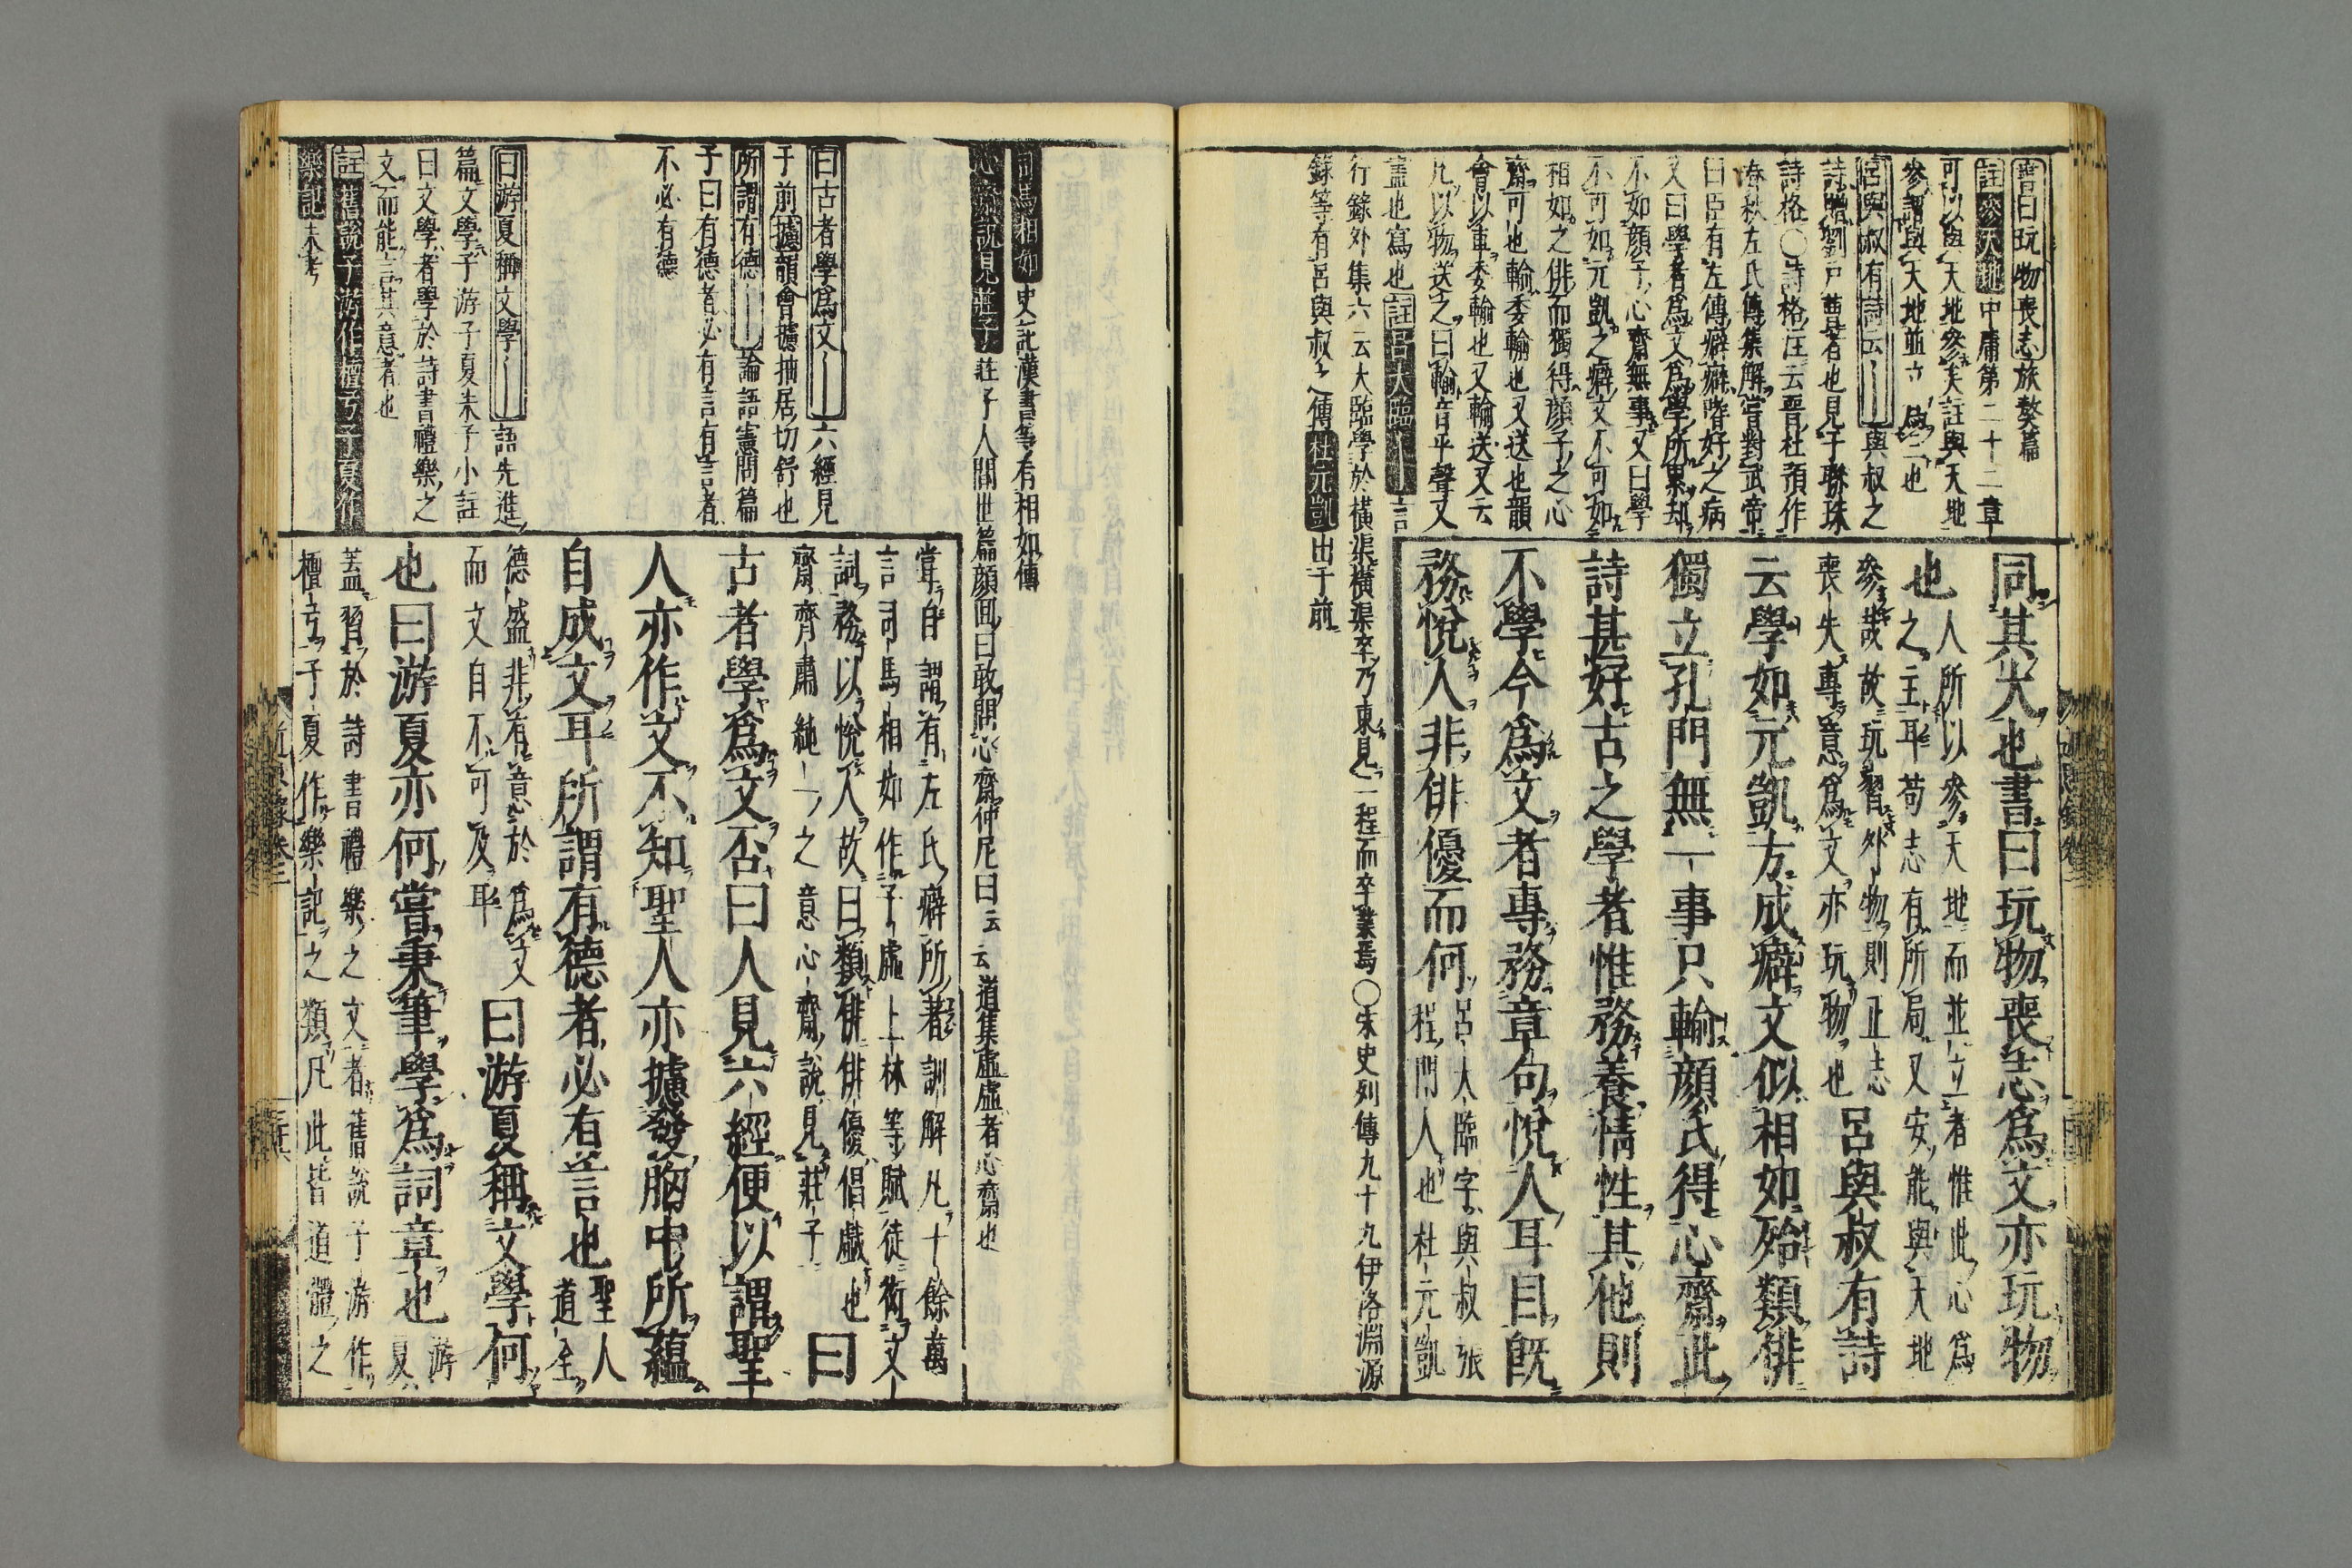 書曰玩物喪志旅獒篇
註參天地中庸第二十二章
可以與天地參矣註與天地
參謂與天地並立爲三也
呂與叔有詩云與叔之
詩贈劉戸曹者也見于聯珠
詩格〇詩格註云晋杜預作
春秋左氏傳集解嘗對武帝
曰臣有左傳癖癖嗜好之病
又曰學者爲文爲學所累却
不如顏子心齋無事又曰學
不可如元凱之癖文不可如
相如之俳而獨得顏子之心
齋可也輸委輸也又送也韻
會以車委輸也又輸送又云
凡以物送之曰輸音平聲又
盡也寫也註呂大臨言
行錄外集六云大臨學於橫渠橫渠卒乃東見二程而卒業焉〇宋史列傳九十九伊洛淵源
錄等有呂與叔之傳杜元凱出于前
同其大也書曰玩物喪志爲文亦玩物
也人所以參天地而並立者惟此心爲
之主耳苟志有所局又安能與天地
參哉故玩習外物則正志
喪失專意爲文亦玩物也呂與叔有詩
云學如元凱方成癖文似相如殆類俳
獨立孔門無一事只輸顏氏得心齋此
詩甚好古之學者惟務養情性其他則
不學今爲文者專務章句悅人耳目既
務悅人非俳優而何呂大臨字與叔張
程門人也杜元凱
司馬相如史記漢書等有相如傳
心齋說見莊子莊子人間世篇顏回曰敢問心齋仲尼曰云云道集虛虛者心齋也
曰古者學爲文六經見
于前攄韻會攄抽居切舒也
所謂有德論語憲問篇
子曰有德者必有言有言者
不必有德
曰游夏稱文學語先進
篇文學子游子夏朱子小註
曰文學者學於詩書禮樂之
文而能言其意者也
註舊說子游作檀弓子夏作
樂記未考
嘗自謂有左氏癖所著訓解凡十餘萬
言司馬相如作子虛上林等賦徒衒文
詞務以悅人故曰類俳俳優倡戲也
齋齊肅純一之意心齋說見莊子曰
古者學爲文否曰人見六經便以謂聖
人亦作文不知聖人亦攄發胸中所蘊
自成文耳所謂有德者必有言也聖人
道全
德盛非有意於爲文
而文自不可及耳曰游夏稱文學何
也曰游夏亦何嘗秉筆學爲詞章也游
夏
蓋習於詩書禮樂之文者舊說子游作
檀弓子夏作樂記之類凡此皆道體之
近思錄卷二